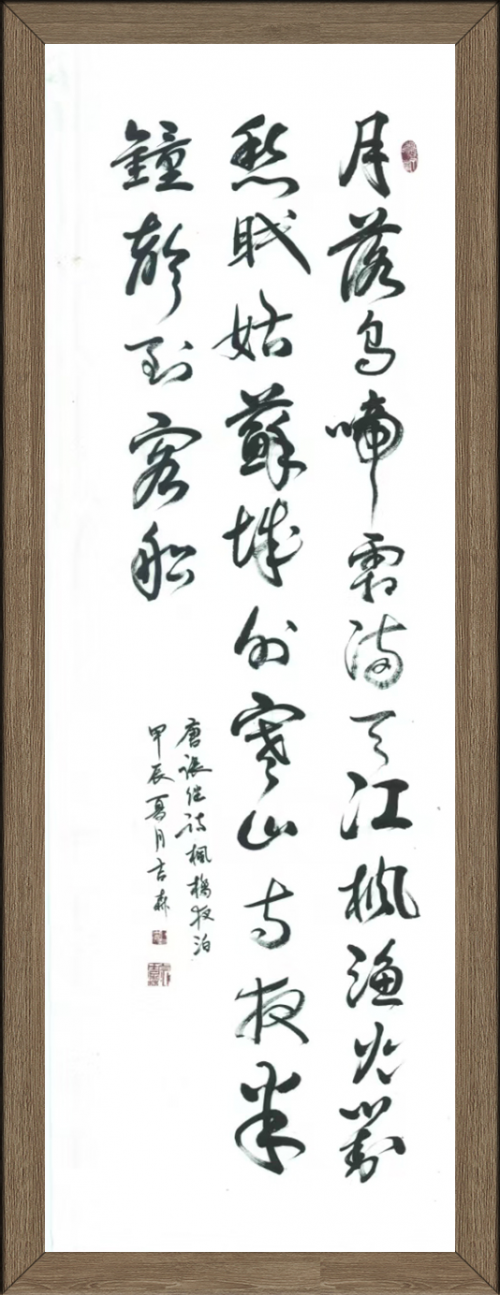 月落烏啼霜滿天江楓漁火對
愁眠姑蘇城外寒山寺夜半
鐘聲到客船
唐張继詩楓橋夜泊
甲辰夏月吉森